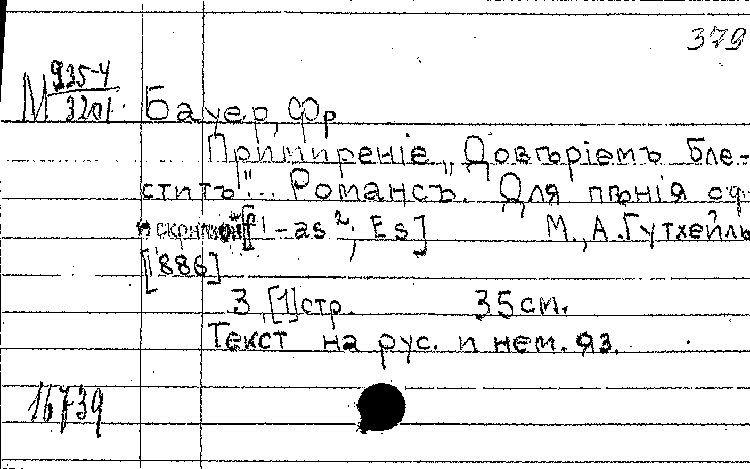 379
М 935-4/3201.
Бауер, Фр
Примиреніе „Довѣріемъ бле-
ститъ"... Романсъ. Для пѣнія с ф-
[1-as²; Es] М., А. Гутхейль
[1886]
3, [1] стр. 35 см.
Текст на рус. и нем. яз.
16739